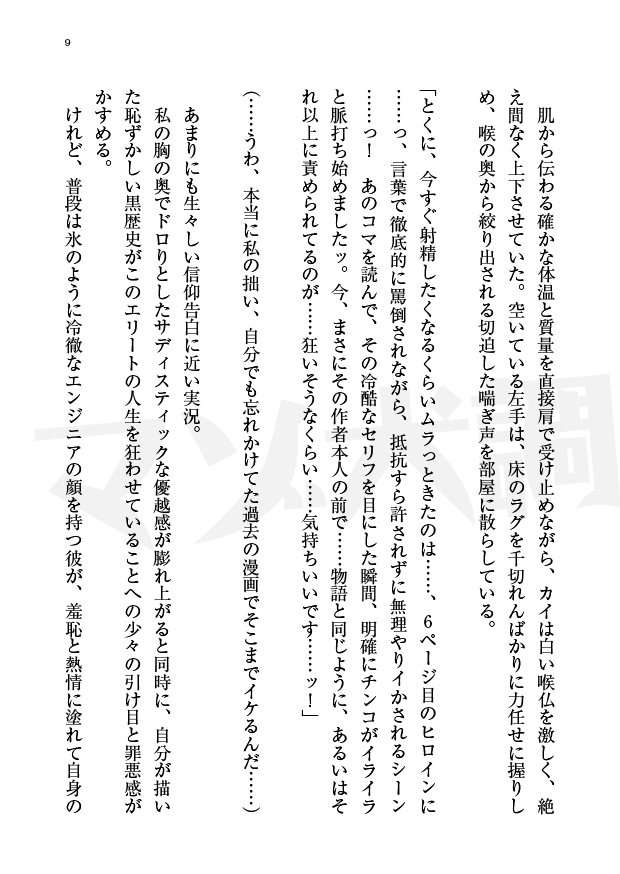 9
肌から伝わる確かな体温と質量を直接肩で受け止めながら、カイは白い喉仏を激しく、絶
え間なく上下させていた。空いている左手は、床のラグを千切れんばかりに力任せに握りし
め、喉の奥から絞り出される切迫した喘ぎ声を部屋に散らしている。
「とくに、今すぐ射精したくなるくらいムラっときたのは……、6ページ目のヒロインに
……っ、言葉で徹底的に罵倒されながら、抵抗すら許されずに無理やりイかされるシーン
……っ！　あのコマを読んで、その冷酷なセリフを目にした瞬間、明確にチンコがイライラ
と脈打ち始めましたッ。今、まさにその作者本人の前で……物語と同じように、あるいはそ
れ以上に責められてるのが……狂いそうなくらい……気持ちいいです……ッ！」
（……うわ、本当に私の拙い、自分でも忘れかけてた過去の漫画でそこまでイケるんだ……）
あまりにも生々しい信仰告白に近い実況。
私の胸の奥でドロりとしたサディスティックな優越感が膨れ上がると同時に、自分が描い
た恥ずかしい黒歴史がこのエリートの人生を狂わせていることへの少々の引け目と罪悪感が
かすめる。
けれど、普段は氷のように冷徹なエンジニアの顔を持つ彼が、羞恥と熱情に塗れて自身の